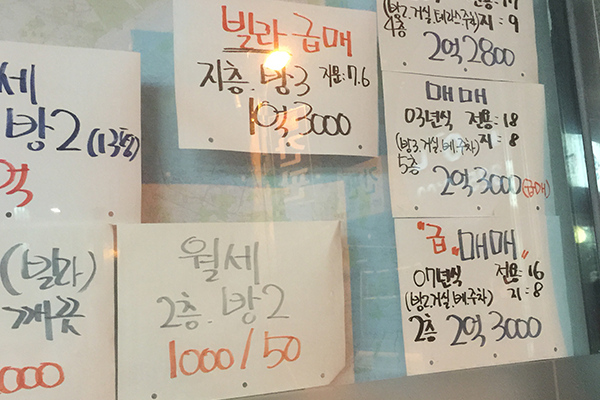 세
방2 (13평)
억
빌라 급매
지층. 방3 지분: 7.6
1억 3000
(방2.거실.테라스.주차) 지: 9
4층
2억 2800
매매
03년식 전용: 18
(방3.거실.베.주차) 지: 8
5층
2억 3000 (급매)
(빌라)
깨끗
000
월세
2층. 방2
1000/50
"급" 매매"
07년식 전용: 16
(방2.거실.베.주차) 지: 8
2층 2억 3000